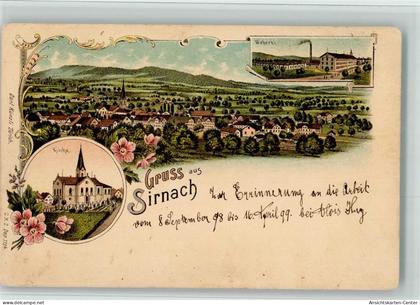 Weberei
Kirche
Gruss aus
Sirnach
Zur Erinnerung an die Arbeit
vom 8 September 98 bis 16 April 99. bei Alois Hug
www.ansichtskarten-center.de
Ansichtskarten-Center